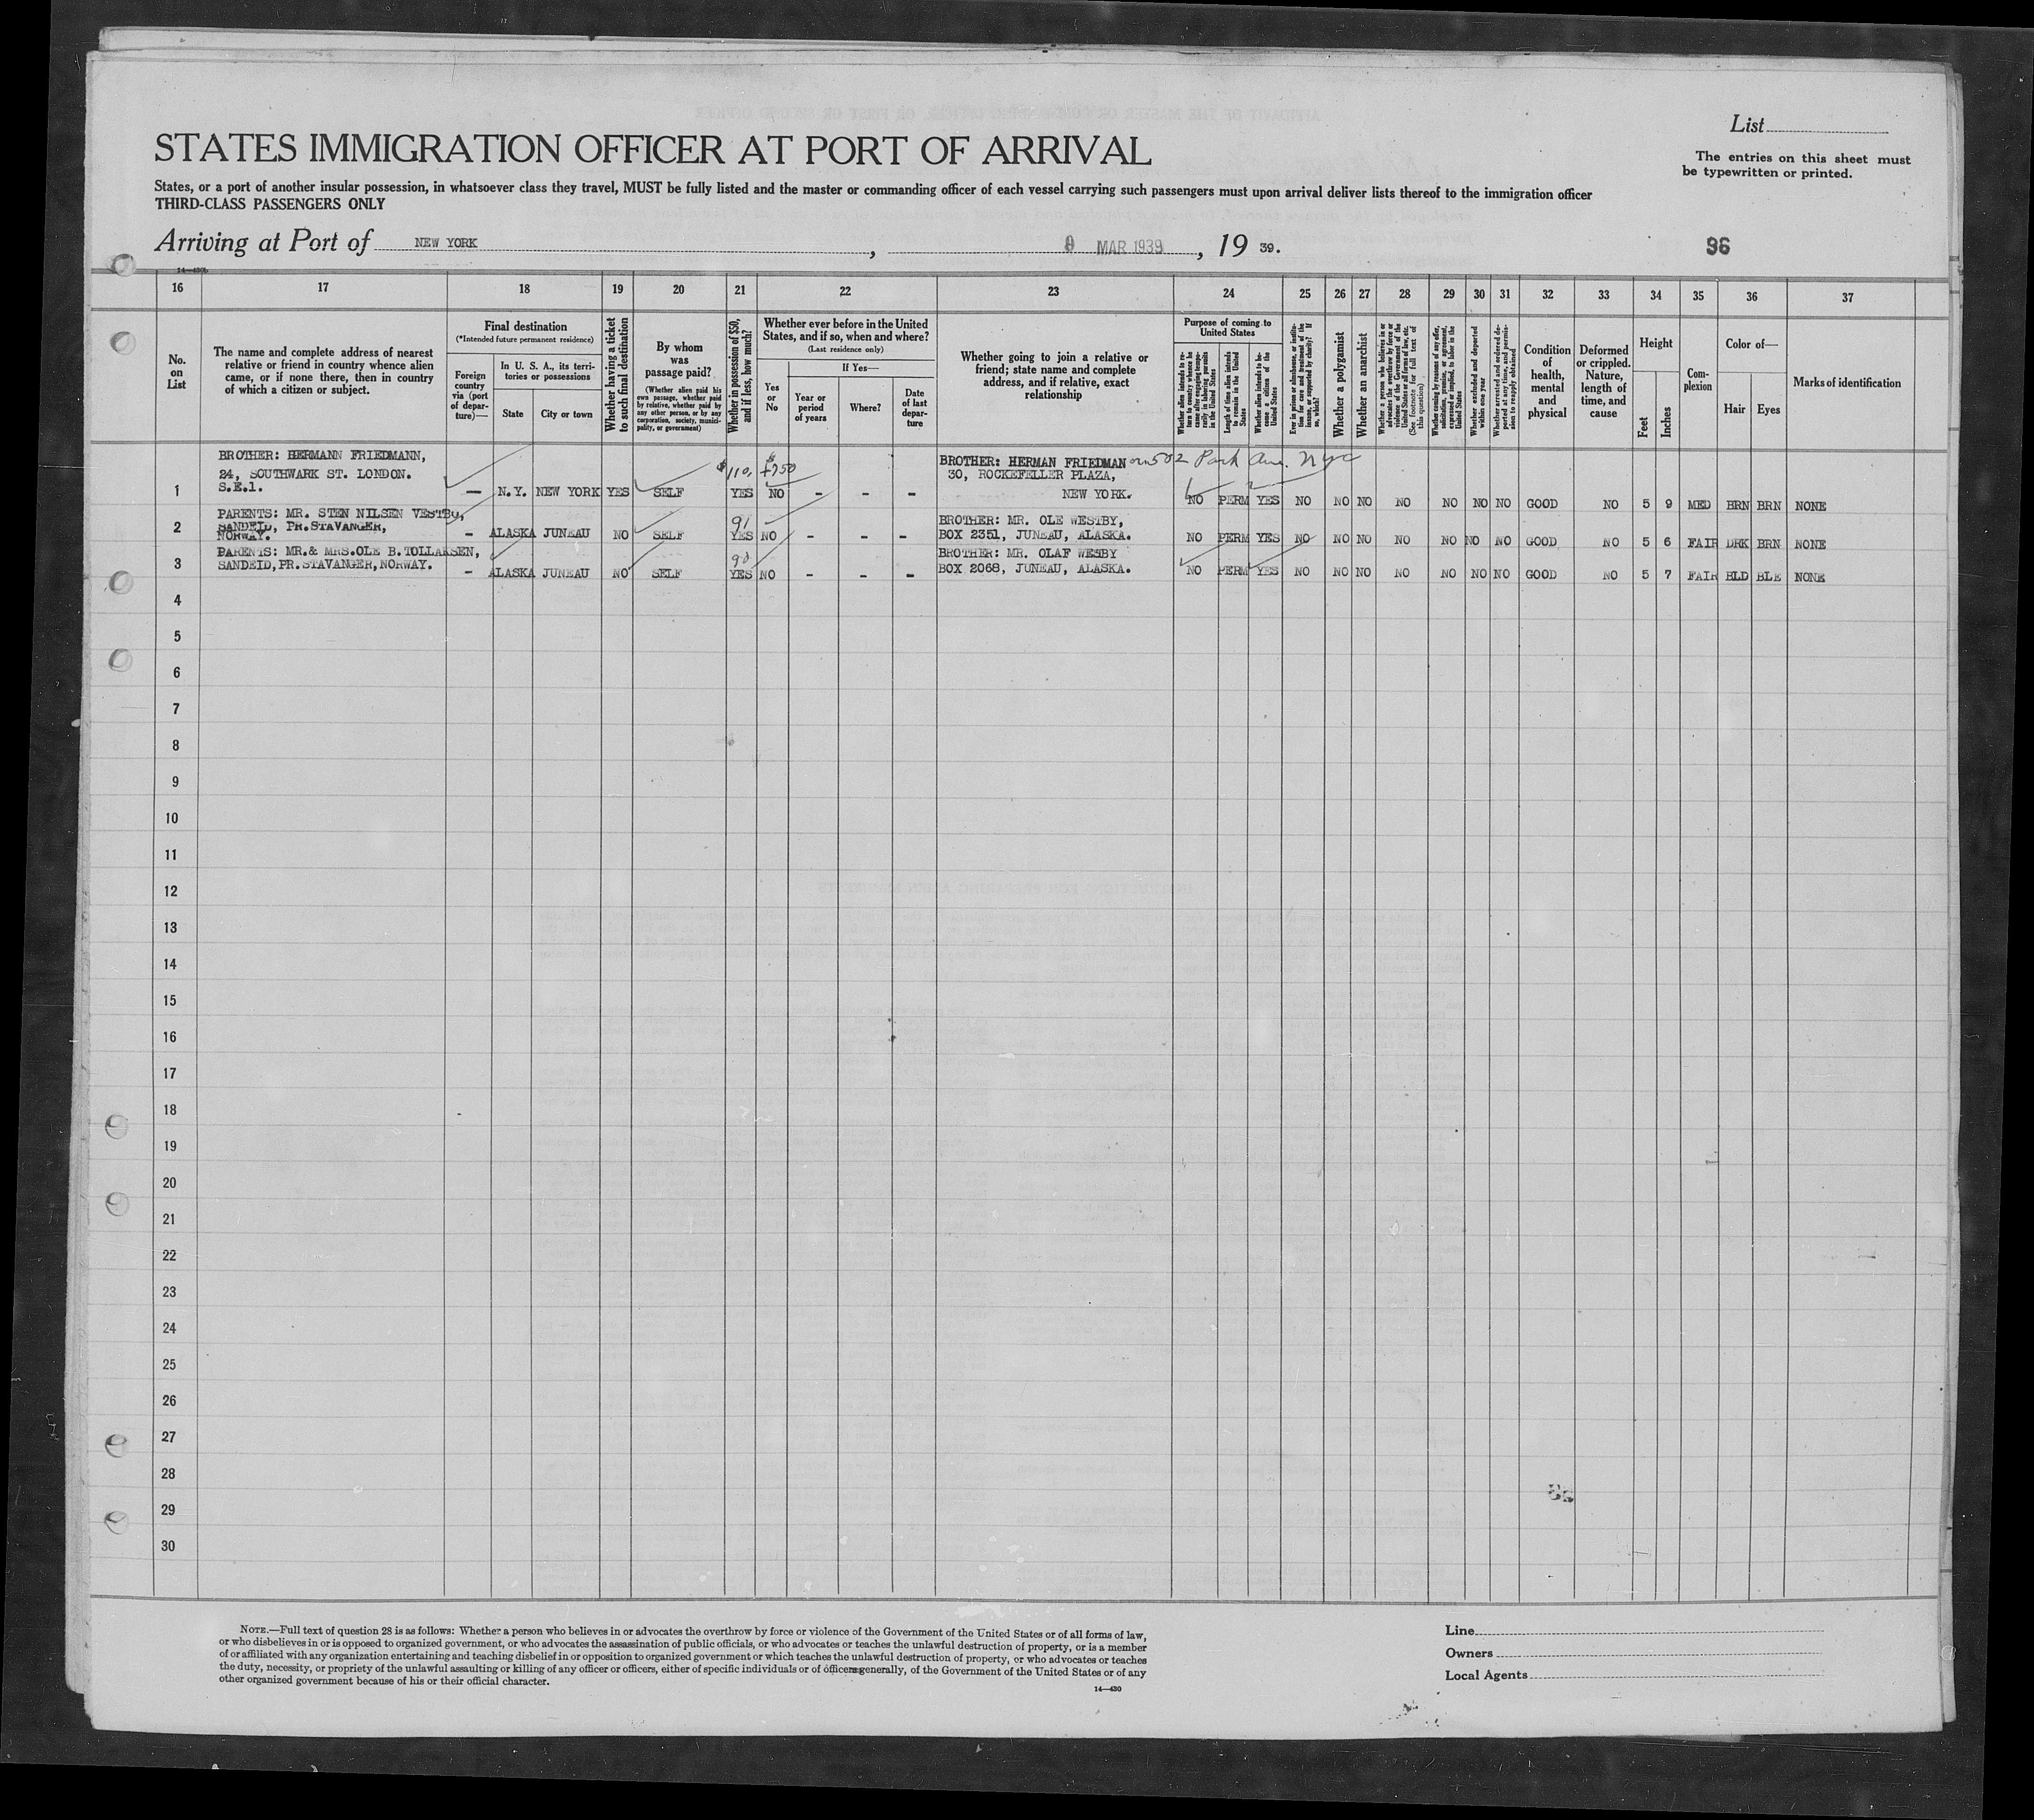 List
STATES IMMIGRATION OFFICER AT PORT OF ARRIVAL
The entries on this sheet must
be typewritten or printed.
States, or a port of another insular possession, in whatsoever class they travel, MUST be fully listed and the master or commanding officer of each vessel carrying such passengers must upon arrival deliver lists thereof to the immigration officer
THIRD-CLASS PASSENGERS ONLY
Arriving at Port of NEW YORK, MAR 1939, 19 39.
96
16 17 18 19 20 21 22 23 24 25 26 27 28 29 30 31 32 33 34 35 36 37
No.
on
List
The name and complete address of nearest
relative or friend in country whence alien
came, or if none there, then in country
of which a citizen or subject.
Final destination
(*Intended future permanent residence)
Foreign
country
via (port
of depar-
ture)—
In U. S. A., its terri-
tories or possessions
State
City or town
Whether having a ticket
to such final destination
By whom
was
passage paid?
(Whether alien paid his
own passage, whether paid
by relative, whether paid by
any other person, or by any
corporation, society, munici-
pality, or government)
Whether in possession of $50,
and if less, how much?
Whether ever before in the United
States, and if so, when and where?
(Last residence only)
Yes
or
No
If Yes—
Year or
period
of years
Where?
Date
of last
depar-
ture
Whether going to join a relative or
friend; state name and complete
address, and if relative, exact
relationship
Purpose of coming to
United States
Whether alien intends to re-
turn to country whence he
came after engaging tempo-
rarily in laboring pursuits
in the United States
Length of time alien intends
to remain in the United
States
Whether alien intends to be-
come a citizen of the
United States
Ever in prison or almshouse, or institu-
tion for care and treatment of the
insane, or supported by charity? If
so, which?
Whether a polygamist
Whether an anarchist
Whether a person who believes in or
advocates the overthrow by force or
violence of the Government of the
United States or all forms of law, etc.
(See footnote for full text of
this question)
Whether coming by reason of any offer,
solicitation, promise, or agreement,
expressed or implied, to labor in the
United States
Whether excluded and deported
within one year
Whether arrested and ordered de-
ported at any time, and permis-
sion to reapply obtained
Condition
of
health,
mental
and
physical
Deformed
or crippled.
Nature,
length of
time, and
cause
Height
Feet
Inches
Com-
plexion
Color of—
Hair
Eyes
Marks of identification
BROTHER: HERMANN FRIEDMANN,
24, SOUTHWARK ST. LONDON.
S.E.1.
1 — N.Y. NEW YORK YES SELF $110, YES NO - - -
BROTHER: HERMAN FRIEDMAN 502 Park Ave. NYC
30, ROCKEFELLER PLAZA,
NEW YORK.
NO PERM YES NO NO NO NO NO NO NO GOOD NO 5 9 MED BRN BRN NONE
PARENTS: MR. STEN NILSEN VESTBY,
SANDEID, PR.STAVANGER,
NORWAY.
2 - ALASKA JUNEAU NO SELF 91 YES NO - - -
BROTHER: MR. OLE WESTBY,
BOX 2351, JUNEAU, ALASKA.
NO PERM YES NO NO NO NO NO NO NO GOOD NO 5 6 FAIR DRK BRN NONE
PARENTS: MR.& MRS.OLE B.TOLLAKSEN,
SANDEID,PR.STAVANGER,NORWAY.
3 - ALASKA JUNEAU NO SELF YES NO - - -
BROTHER: MR. OLAF WESBY
BOX 2068, JUNEAU, ALASKA.
NO PERM YES NO NO NO NO NO NO NO GOOD NO 5 7 FAIR BLD BLE NONE
4
5
6
7
8
9
10
11
12
13
14
15
16
17
18
19
20
21
22
23
24
25
26
27
28
29
30
NOTE.—Full text of question 28 is as follows: Whether a person who believes in or advocates the overthrow by force or violence of the Government of the United States or of all forms of law,
or who disbelieves in or is opposed to organized government, or who advocates the assassination of public officials, or who advocates or teaches the unlawful destruction of property, or is a member
of or affiliated with any organization entertaining and teaching disbelief in or opposition to organized government or which teaches the unlawful destruction of property, or who advocates or teaches
the duty, necessity, or propriety of the unlawful assaulting or killing of any officer or officers, either of specific individuals or of officers generally, of the Government of the United States or of any
other organized government because of his or their official character.
14—430
Line
Owners
Local Agents